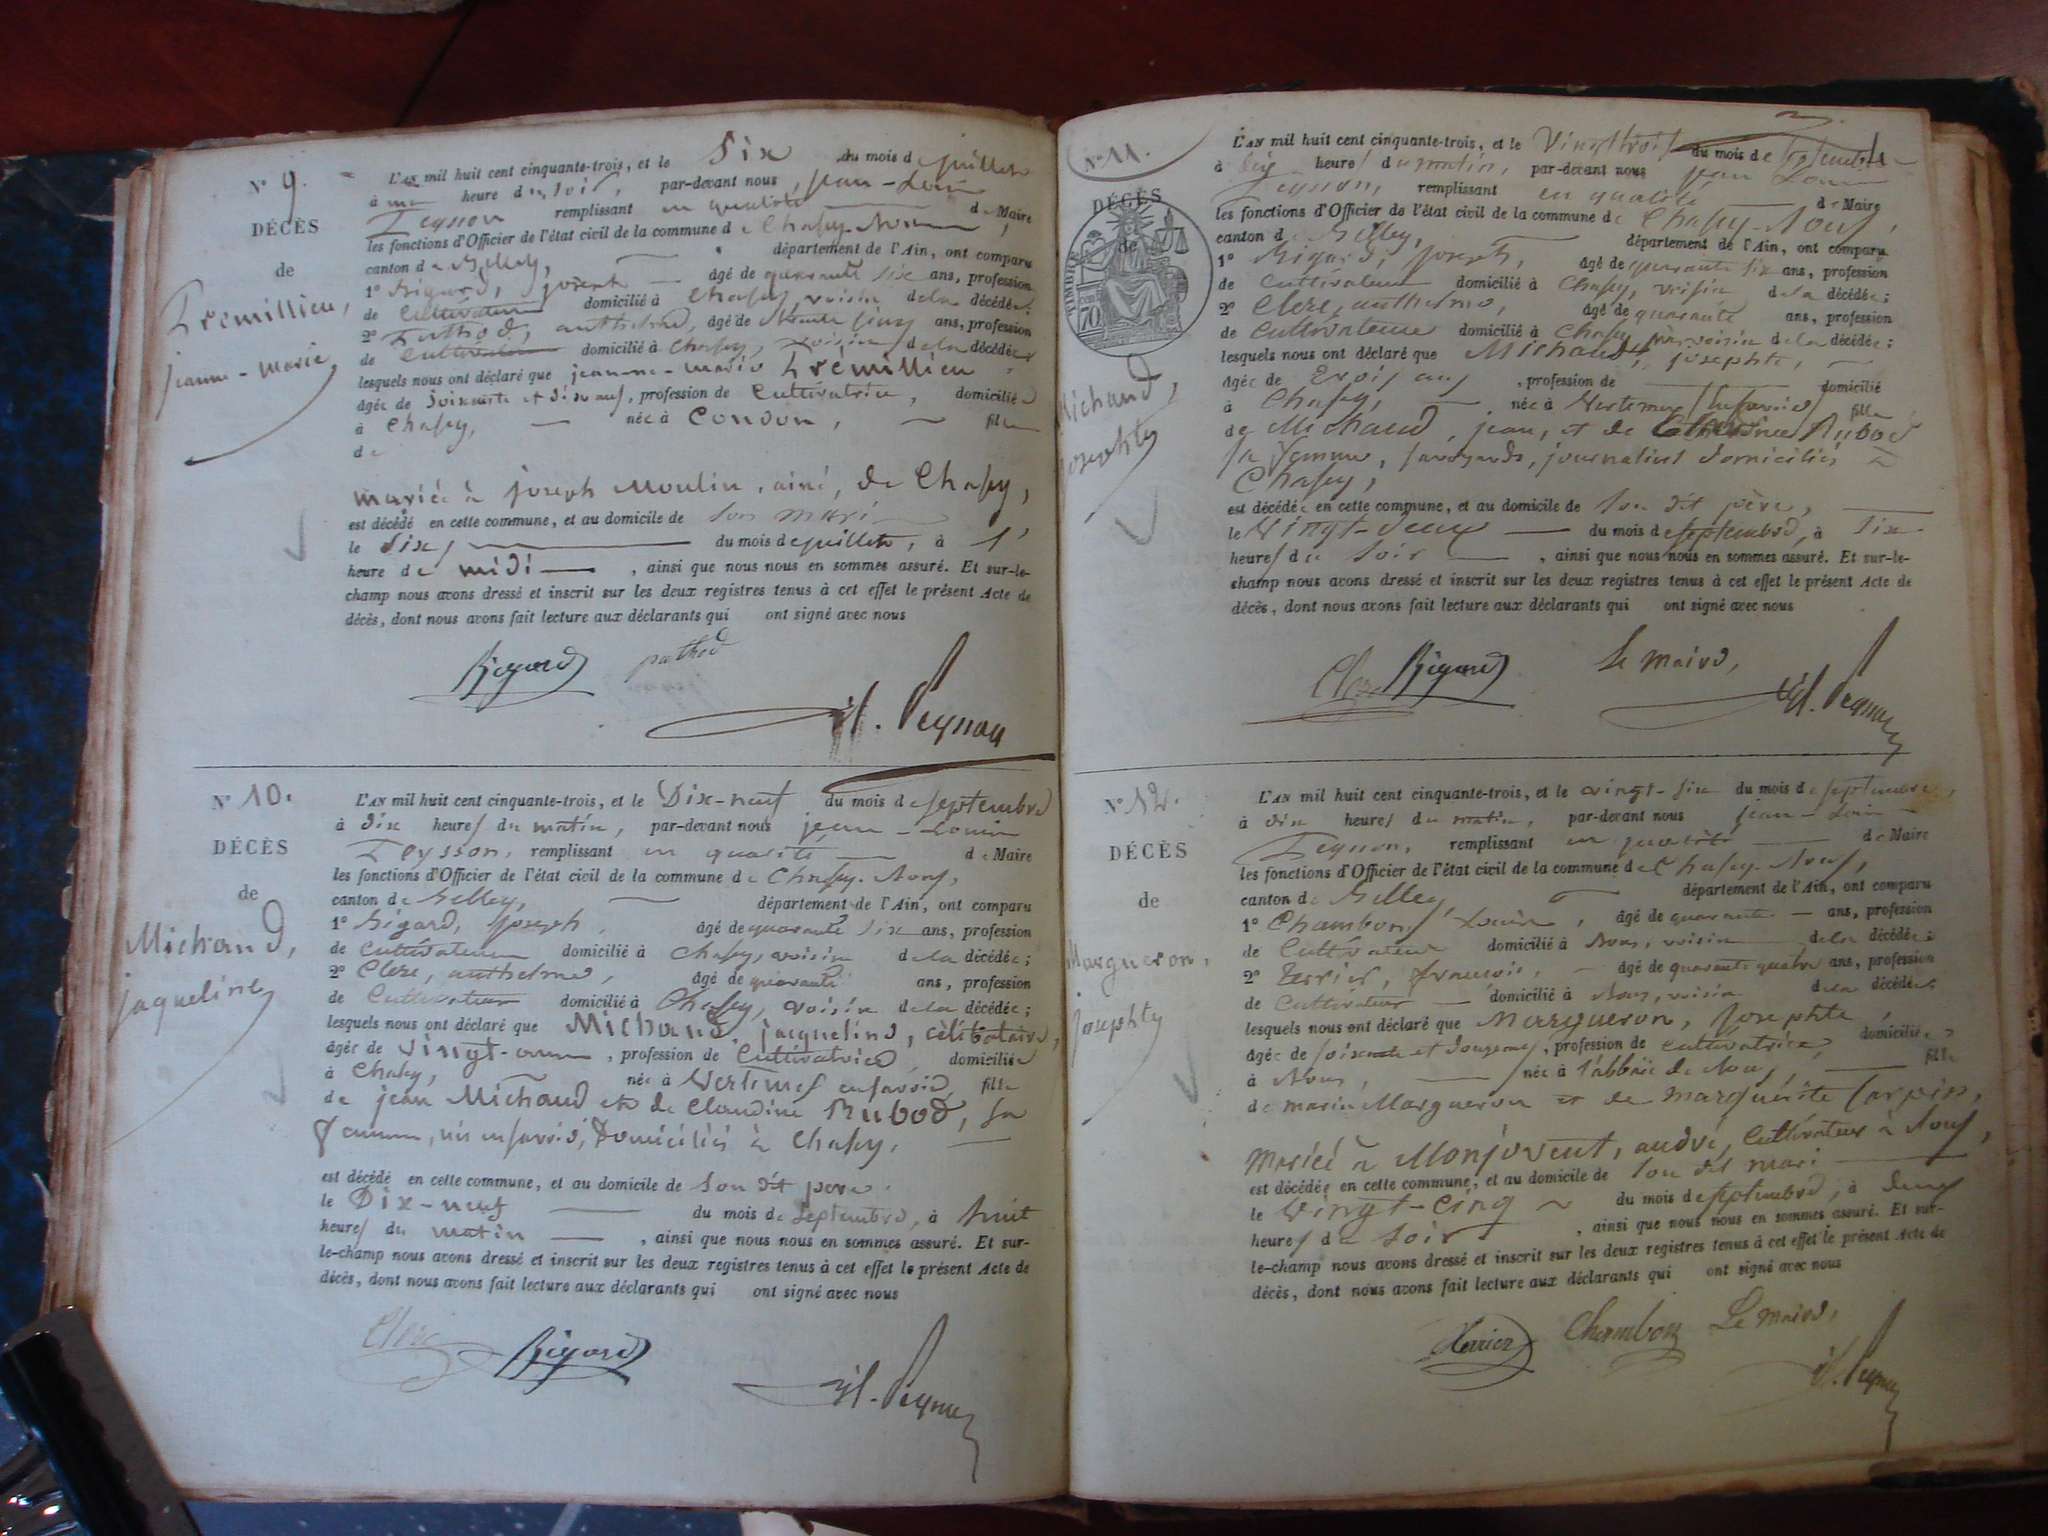 N° 9.
DÉCÈS
de
Tremillieu,
jeanne-marie
L'AN mil huit cent cinquante-trois, et le Six du mois d juillet
à une heure du soir, par-devant nous, jean-Louis
Teysson remplissant en qualité de Maire
les fonctions d'Officier de l'état civil de la commune de Chasey-
canton de Belley, département de l'Ain, ont comparu
1° Rigard, joseph âgé de quarante six ans, profession
de Cultivateur domicilié à Chasey, voisin de la décédée;
2° anthelme, âgé de trente cinq ans, profession
de Cultivateur domicilié à Chasey, voisin de la décédée;
lesquels nous ont déclaré que jeanne-marie Trémillieu
âgée de soixante et dix neuf, profession de Cultivatrice, domiciliée
à Chasey, née à Condon, fille
de
mariée à joseph Moulin, ainé, de Chasey,
est décédé en cette commune, et au domicile de son mari
le Six du mois de juillet, à 1
heure de midi, ainsi que nous nous en sommes assuré. Et sur-le-
champ nous avons dressé et inscrit sur les deux registres tenus à cet effet le présent Acte de
décès, dont nous avons fait lecture aux déclarants qui ont signé avec nous
Rigard
N° 10.
DÉCÈS
de
Michaud,
jaqueline
L'AN mil huit cent cinquante-trois, et le Dix-neuf du mois de septembre
à dix heures du matin, par-devant nous jean-Louis
Teysson, remplissant en qualité de Maire
les fonctions d'Officier de l'état civil de la commune de Chasey-
canton de Belley, département de l'Ain, ont comparu
1° Rigard, joseph, âgé de quarante six ans, profession
de Cultivateur domicilié à Chasey, voisin de la décédée;
2° Clerc, anthelme, âgé de quarante ans, profession
de Cultivateur domicilié à Chasey, voisin de la décédée;
lesquels nous ont déclaré que Michaud, jacqueline, célibataire,
âgée de vingt-, profession de Cultivatrice, domiciliée
à Chasey, née à en savoie, fille
de jean Michaud et de Claudine Rubod, sa
femme, domiciliés à Chasey.
est décédé en cette commune, et au domicile de son dit père.
le Dix-neuf du mois de septembre, à huit
heures du matin, ainsi que nous nous en sommes assuré. Et sur-
le-champ nous avons dressé et inscrit sur les deux registres tenus à cet effet le présent Acte de
décès, dont nous avons fait lecture aux déclarants qui ont signé avec nous
Clerc Rigard
N° 11.
DÉCÈS
de
TIMBRE
70
Michaud,
josephte
L'AN mil huit cent cinquante-trois, et le Vingt trois du mois de septembre
à dix heures du matin, par-devant nous jean Louis
Teysson, remplissant en qualité de Maire
les fonctions d'Officier de l'état civil de la commune de Chasey-
canton de Belley, département de l'Ain, ont comparu
1° Rigard, joseph, âgé de quarante six ans, profession
de Cultivateur domicilié à Chasey, voisin de la décédée;
2° Clerc, anthelme, âgé de quarante ans, profession
de Cultivateur domicilié à Chasey, voisin de la décédée;
lesquels nous ont déclaré que Michaud, josephte,
âgée de trois ans, profession de domicilié
à Chasey, née à fille
de Michaud, jean, et de Rubod
sa femme, savoyards, domiciliés à
Chasey,
est décédée en cette commune, et au domicile de son dit père,
le Vingt-deux du mois de septembre, à six
heures du soir, ainsi que nous nous en sommes assuré. Et sur-le-
champ nous avons dressé et inscrit sur les deux registres tenus à cet effet le présent Acte de
décès, dont nous avons fait lecture aux déclarants qui ont signé avec nous
Clerc Rigard Le maire,
N° 12.
DÉCÈS
de
Margueron,
josephte
L'AN mil huit cent cinquante-trois, et le vingt-six du mois de septembre,
à dix heures du matin, par-devant nous jean-Louis
Teysson, remplissant en qualité de Maire
les fonctions d'Officier de l'état civil de la commune de Chasey-
canton de Belley, département de l'Ain, ont comparu
1° Chambon, Louis, âgé de quarante ans, profession
de Cultivateur domicilié à voisin de la décédée;
2° Terrier, françois, âgé de quarante quatre ans, profession
de Cultivateur domicilié à voisin de la décédée;
lesquels nous ont déclaré que Margueron, josephte,
âgée de soixante et, profession de cultivatrice, domiciliée
à née à l'abbaie de fille
de Margueron et de marguerite
mariée à Monjovent, andré, Cultivateur à
est décédée en cette commune, et au domicile de son dit mari
le Vingt-cinq du mois de septembre, à deux
heures du soir, ainsi que nous nous en sommes assuré. Et sur-
le-champ nous avons dressé et inscrit sur les deux registres tenus à cet effet le présent Acte de
décès, dont nous avons fait lecture aux déclarants qui ont signé avec nous
Chambon Le maire,